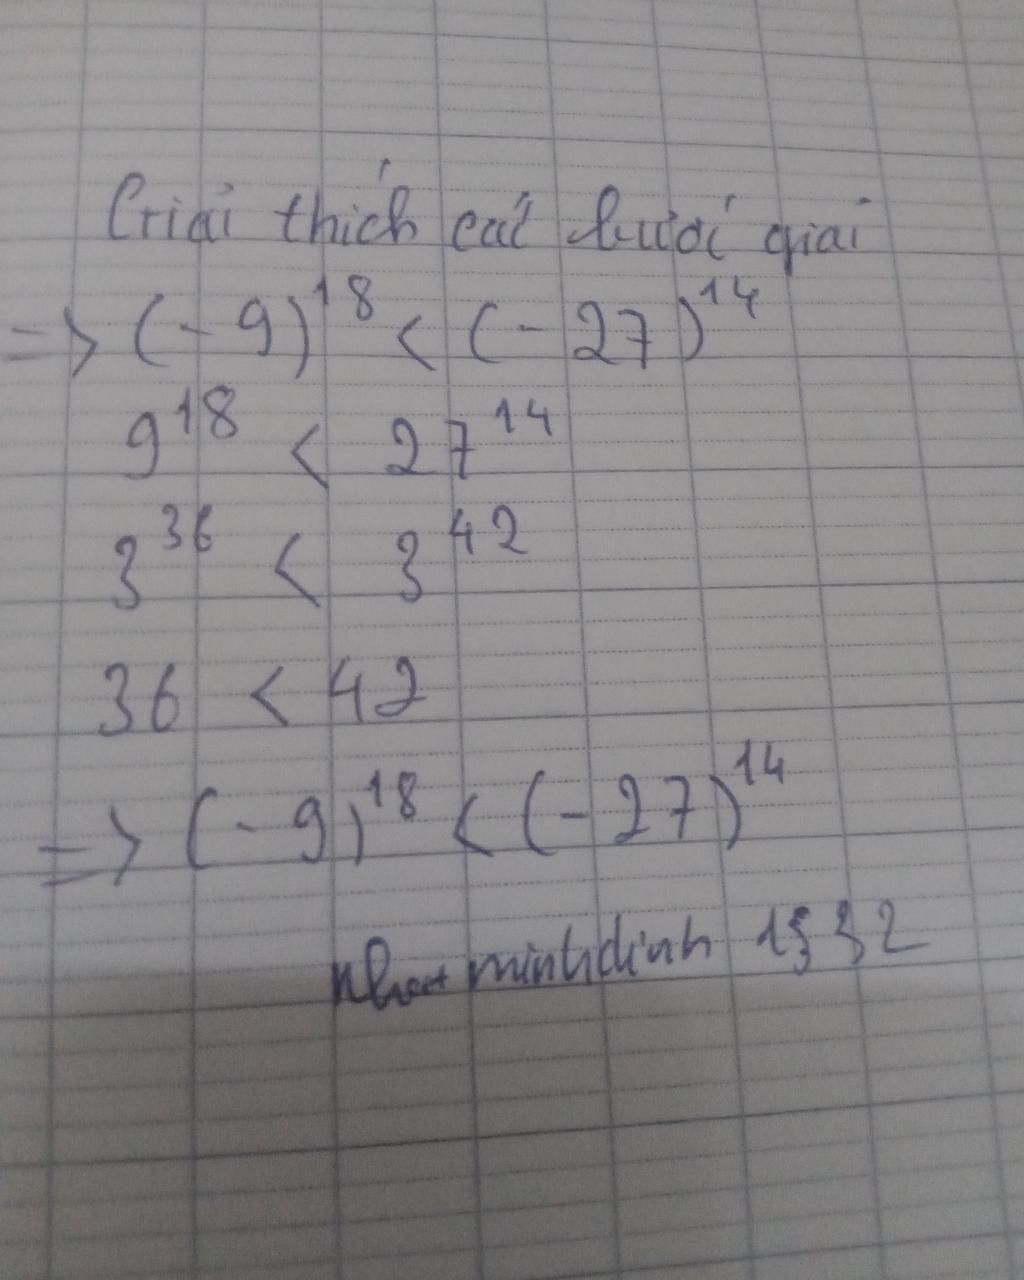 Giải thích các bước giải
=> (-9)^18 < (-27)^14
9^18 < 27^14
3^36 < 3^42
36 < 42
=> (-9)^18 < (-27)^14
minhdinh